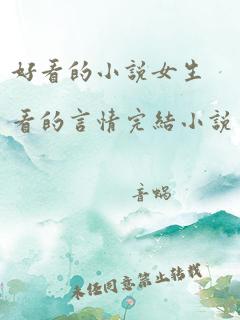 好看的小說女生
看的言情完結小說
音蝸
未经同意禁止转载